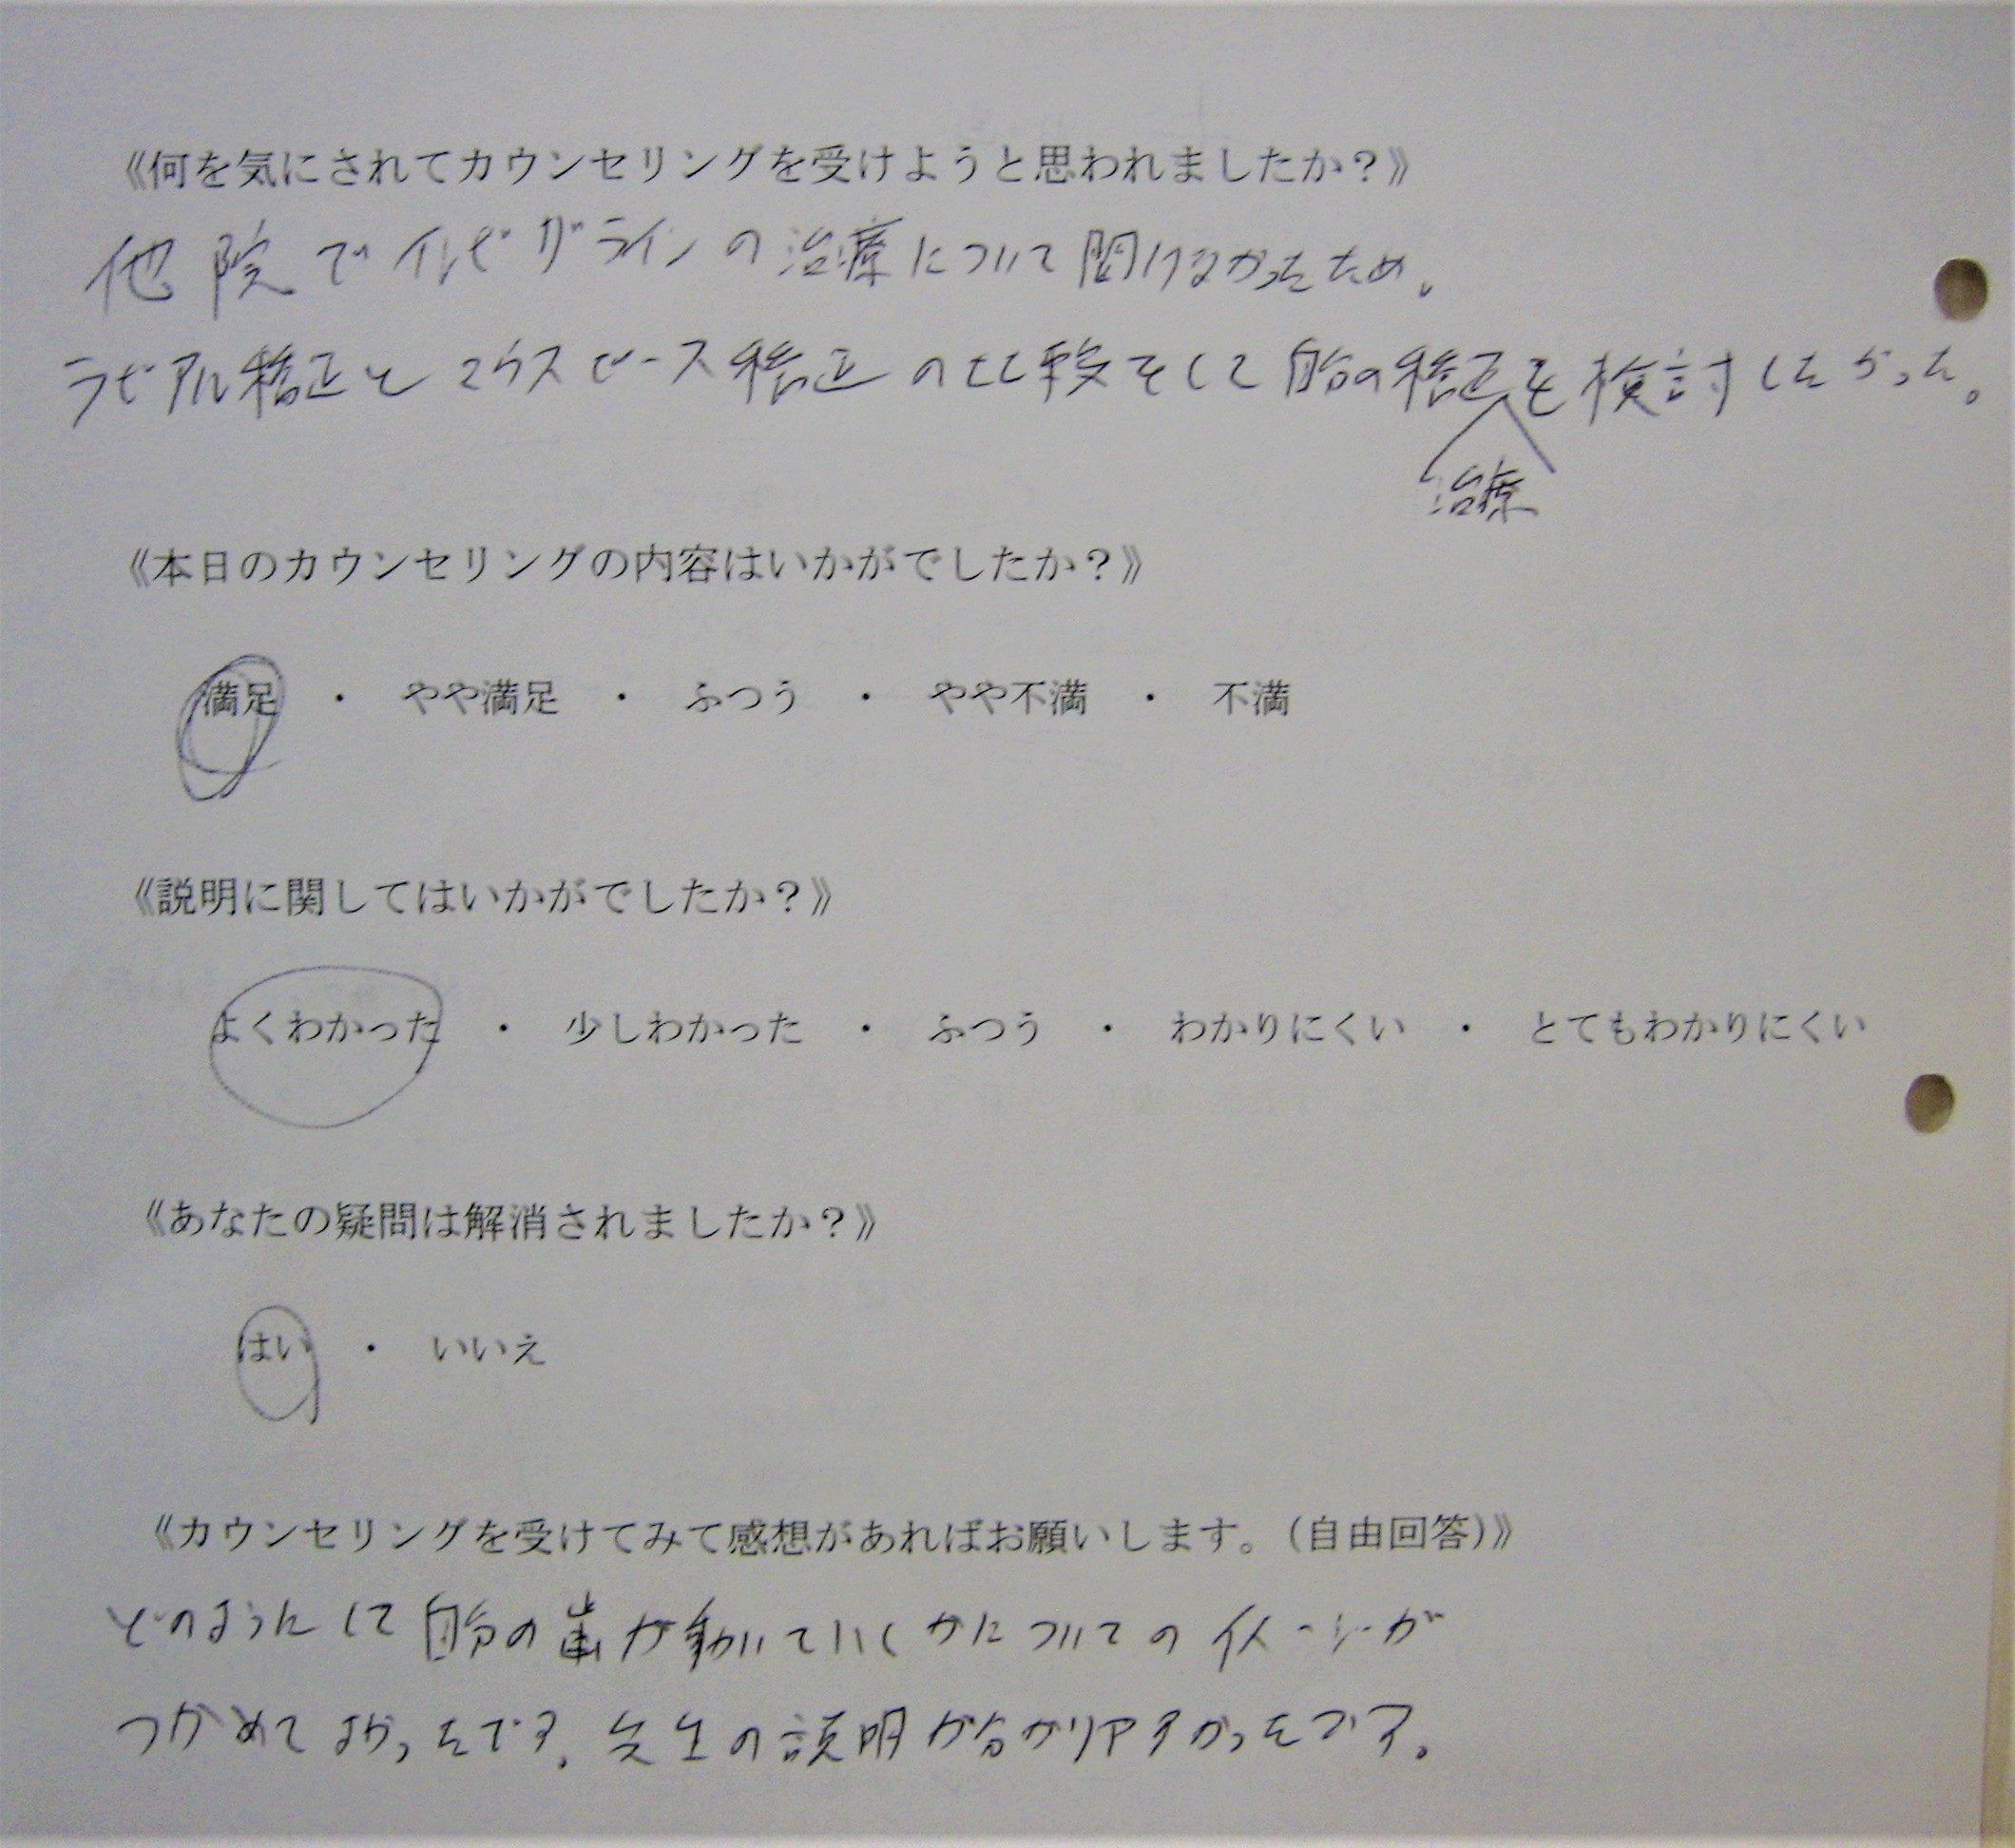 《何を気にされてカウンセリングを受けようと思われましたか？》
他院でインビザラインの治療について聞けなかったため。
ラビアル矯正とマウスピース矯正の比較をして自分の矯正を検討したかった。
治療
《本日のカウンセリングの内容はいかがでしたか？》
満足 ・ やや満足 ・ ふつう ・ やや不満 ・ 不満
《説明に関してはいかがでしたか？》
よくわかった ・ 少しわかった ・ ふつう ・ わかりにくい ・ とてもわかりにくい
《あなたの疑問は解消されましたか？》
はい ・ いいえ
《カウンセリングを受けてみて感想があればお願いします。（自由回答）》
どのようにして自分の歯が動いていくかについてのイメージが
つかめてよかったです。先生の説明が分かりやすかったです。